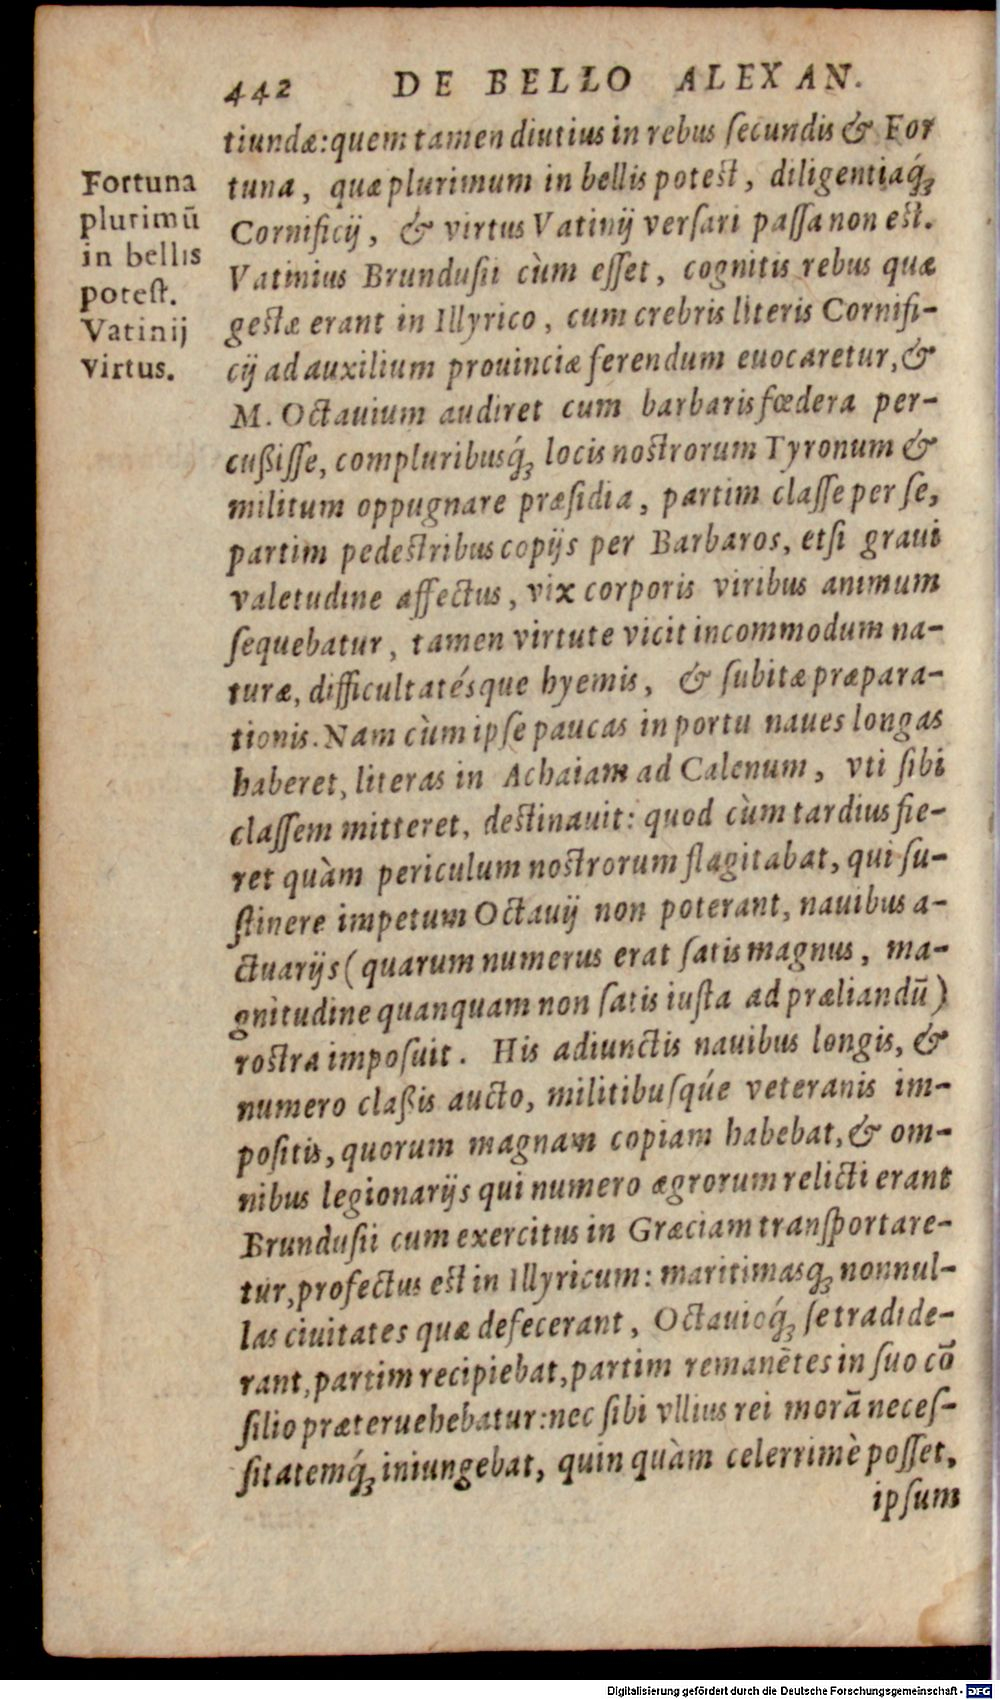 442 DE BELLO ALEXAN.
tiundæ: quem tamen diutius in rebus ſecundis & For
tuna, quæ plurimum in bellis poteſt, diligentiaq́ꝫ
Cornificij, & virtus Vatinij verſari paſſa non eſt.
Vatinius Brunduſii cùm eſſet, cognitis rebus quæ
geſtæ erant in Illyrico, cum crebris literis Cornifi-
cij ad auxilium prouinciæ ferendum euocaretur, &
M. Octauium audiret cum barbaris fœdera per-
cußiſſe, compluribusq́ꝫ locis noſtrorum Tyronum &
militum oppugnare præſidia, partim claſſe per ſe,
partim pedeſtribus copijs per Barbaros, etſi graui
valetudine affectus, vix corporis viribus animum
ſequebatur, tamen virtute vicit incommodum na-
turæ, difficultatésque hyemis, & ſubitæ præpara-
tionis. Nam cùm ipſe paucas in portu naues longas
haberet, literas in Achaiam ad Calenum, vti ſibi
claſſem mitteret, deſtinauit: quod cùm tardius fie-
ret quàm periculum noſtrorum flagitabat, qui ſu-
ſtinere impetum Octauij non poterant, nauibus a-
ctuarijs (quarum numerus erat ſatis magnus, ma-
gnitudine quanquam non ſatis iuſta ad præliandū)
roſtra impoſuit. His adiunctis nauibus longis, &
numero claßis aucto, militibuſqúe veteranis im-
poſitis, quorum magnam copiam habebat, & om-
nibus legionarijs qui numero ægrorum relicti erant
Brunduſii cum exercitus in Græciam tranſportare-
tur, profectus eſt in Illyricum: maritimasqꝫ nonnul-
las ciuitates quæ defecerant, Octauioq́ꝫ ſe tradide-
rant, partim recipiebat, partim remanētes in ſuo cō
ſilio præteruehebatur: nec ſibi vllius rei morā neceſ-
ſitatemq́ꝫ iniungebat, quin quàm celerrimè poſſet,
ipſum
Fortuna
plurimū
in bellis
poteſt.
Vatinij
virtus.
Digitalisierung gefördert durch die Deutsche Forschungsgemeinschaft - DFG